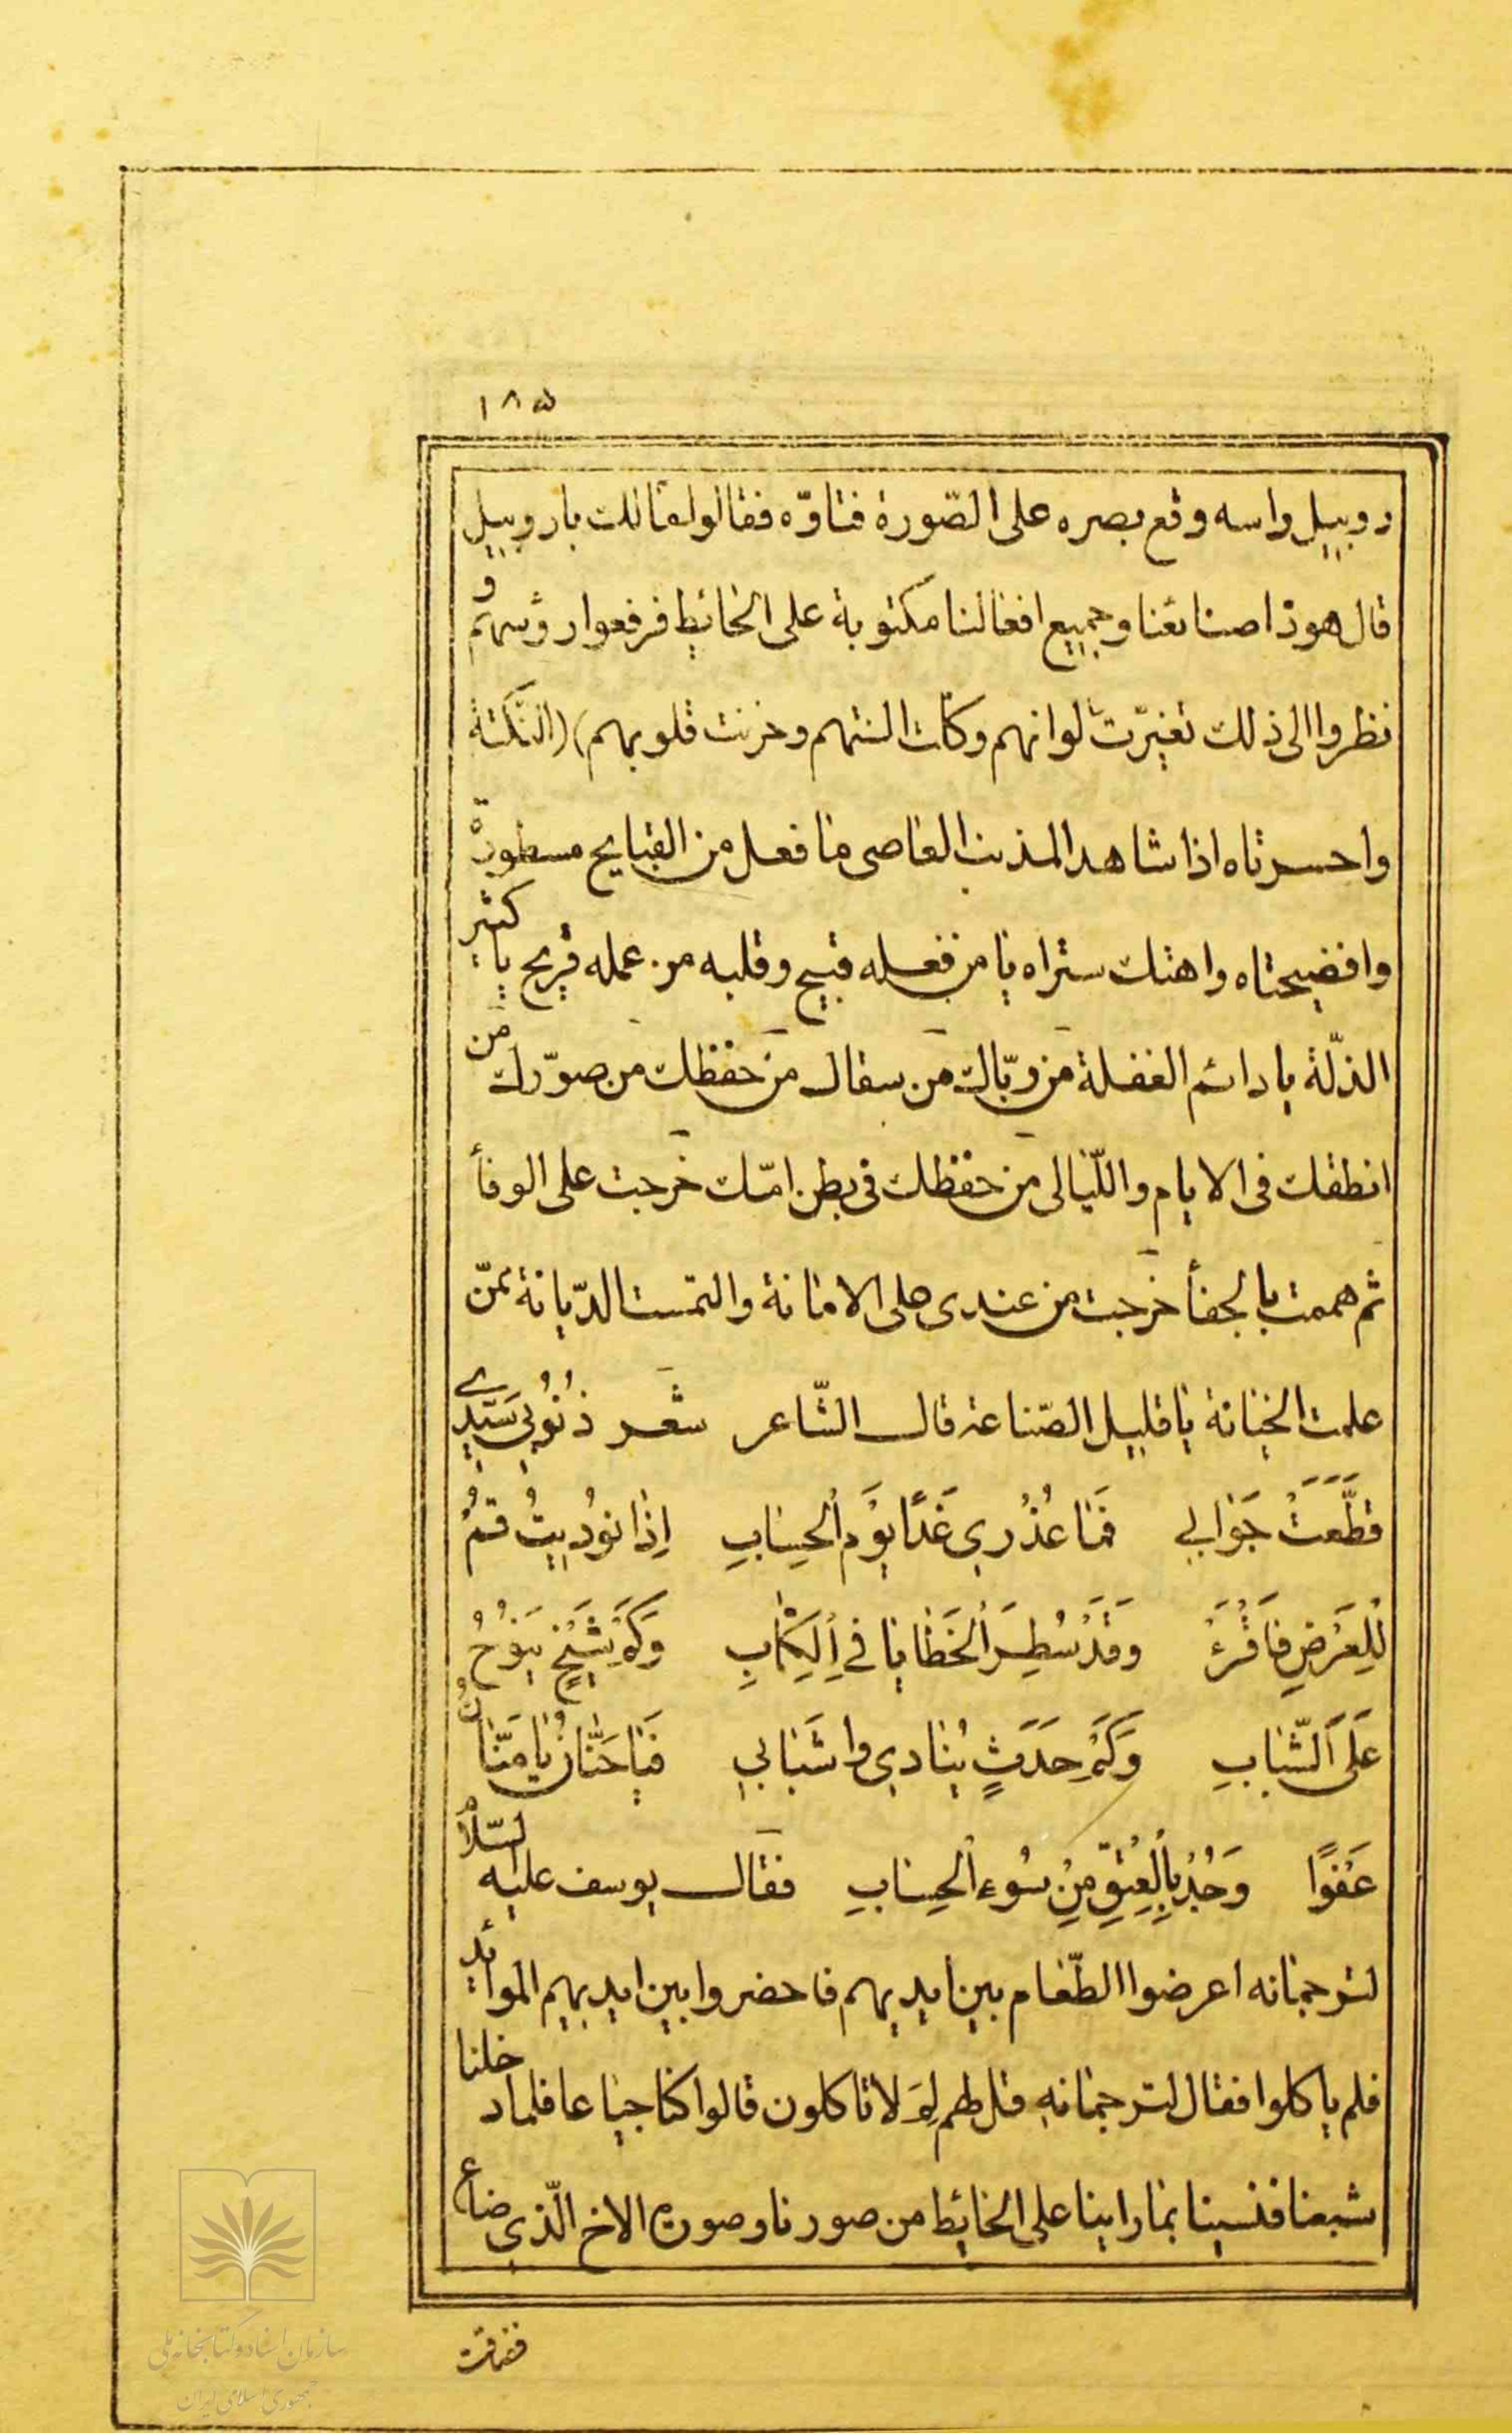 ۱۸۵
روبیل راسه وقع بصره علی الصّورة فتاوّه فقالوا لما لك یا روبیل
قال هوذا صنائعنا وجمیع افعالنا مکتوبة علی الحائیط فرفعوا رؤسهم و
نظروا الی ذلك تغیّرت الوانهم وکلّت السنتهم وحزنت قلوبهم (النّکتة
واحسرتاه اذا شاهد المذنب العاصی ما فعل من القبایح مسطورة
وافضیحتاه واهتك ستراه یا من فعله قبیح وقلبه من عمله قریح یا کثیر
الذلّة یا دائم الغفلة من ربّاك من سقاك من حفظك من صوّرك من
انطقك فی الایام واللّیالی من حفظك فی بطن امّك خرجت علی الوفأ
ثم هممت بالجفأ خرجت من عندی علی الامانة والتمست الدّیانة بمن
علمت الخیانة یا قلیل الصّناعة قال الشّاعر شعر ذُنُوبی سَیِّدِے
قطَّعَتْ جَوَابی فَمَا عُذْرِی غَدًا یَوْمَ الْحِسَابِ اِذَا نوُدِیتُ قُمْ
لِلْعَرْضِ فَاقْرَءْ وَقَدْ سُطِرَ الْخَطَایَا فِی الْکِتَابِ وَکَمْ شَیْخٍ یَنوُحُ
عَلَی الشَّبَابِ وَکَمْ حَدَثٍ یُنَادِی وَاشَبَابِی فَیَا حَنَّانُ یَا مَنَّانُ
عَفْوًا وَجُدْ بِالْعِتْقِ مِنْ سُوءِ الْحِسَابِ فقال یوسف علیه السّلام
لترجمانه اعرضوا الطّعام بین ایدیهم فاحضروا بین ایدیهم الموائد
فلم یاکلوا فقال لترجمانه قل لهم لِمَ لا تاکلون قالوا کنا جیاعا فلما دخلنا
شبعنا فنسینا بما راینا علی الحائیط من صورنا وصورة الاخ الّذی ضاع
ففرقت
سازمان اسناد و کتابخانه ملی
جمهوری اسلامی ایران